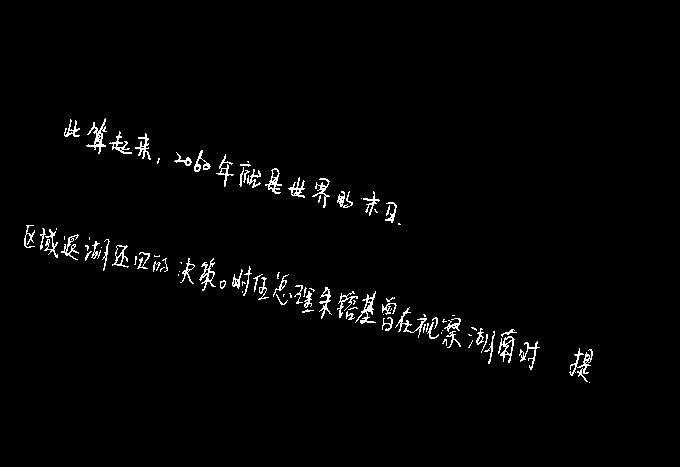 此算起来，2060年就是世界的末日.
区域退湖还田的决策。时任总理朱镕基曾在视察湖南时 提